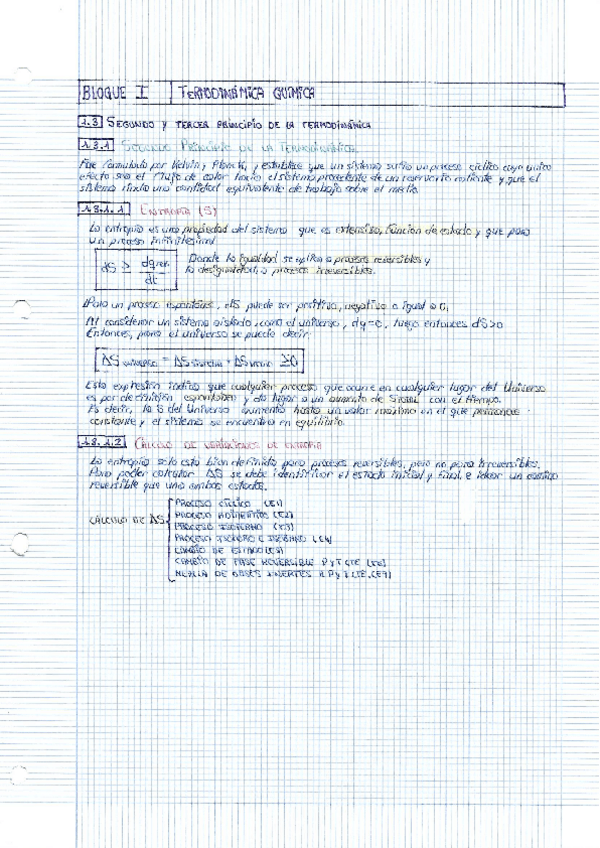 BLOQUE I TERMODINÁMICA QUÍMICA
1.3 SEGUNDO Y TERCER PRINCIPIO DE LA TERMODINÁMICA
1.3.1 SEGUNDO PRINCIPIO DE LA TERMODINÁMICA
Fue formulado por Kelvin y Planck, y establece que un sistema sufra un proceso cíclico cuyo único
efecto sea el flujo de calor hacia el sistema procedente de un reservorio caliente y que el
sistema rinda una cantidad equivalente de trabajo sobre el medio.
1.3.1.1 ENTROPÍA (S)
La entropía es una propiedad del sistema que es extensiva, función de estado y que para
un proceso infinitesimal
dS ≥ dqrev / dt Donde la igualdad se aplica a procesos reversibles y
la desigualdad, a procesos irreversibles.
Para un proceso espontáneo, dS puede ser positiva, negativa o igual a 0.
Al considerar un sistema aislado, como el universo, dq=0, luego entonces dS>0
Entonces, para el universo se puede decir:
ΔS universo = ΔS sistema + ΔS medio ≥0
Esta expresión indica que cualquier proceso que ocurre en cualquier lugar del Universo
es por definición espontáneo y da lugar a un aumento de con el tiempo.
Es decir, la S del Universo aumenta hasta un valor máximo en el que permanece
constante y el sistema se encuentra en equilibrio.
1.3.1.2 CÁLCULO DE VARIACIONES DE ENTROPÍA
La entropía solo está bien definida para procesos reversibles, pero no para irreversibles.
Para poder calcular ΔS se debe identificar el estado inicial y final, e idear un camino
reversible que una ambos estados.
CÁLCULO DE ΔS
PROCESO CÍCLICO (E1)
PROCESO ADIABÁTICO (E2)
PROCESO ISOTERMO (E3)
PROCESO ISOCORO E ISOBARO (E4)
CAMBIO DE ESTADO (E5)
CAMBIO DE FASE REVERSIBLE P y T CTE (E6)
MEZCLA DE GASES INERTES A P y T CTE. (E7)